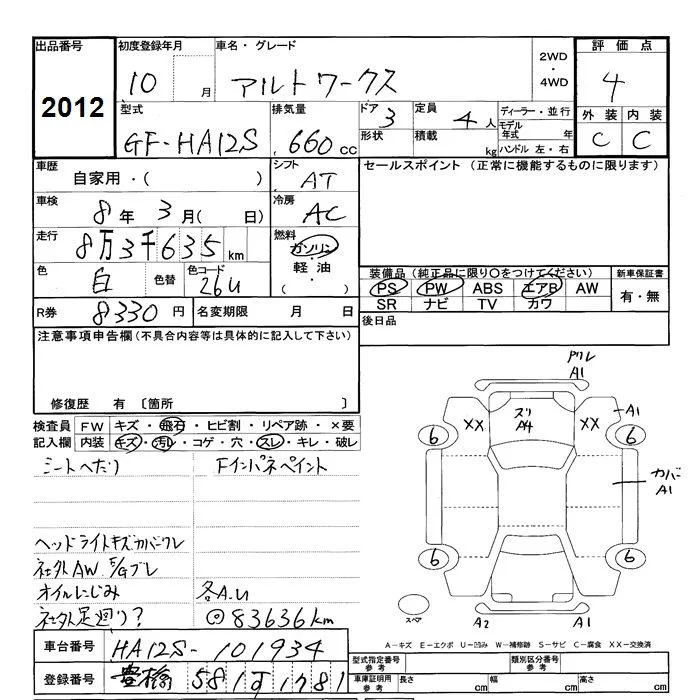 出品番号 初度登録年月 車名・グレード 2WD・4WD 評価点
2012 10月 アルトワークス 4
型式 排気量 ドア 3 定員 4人 ディーラー・並行 外装 内装
GF-HA12S 660cc 形状 積載 kg モデル年式 年 ハンドル 左・右 C C
車歴 自家用・( ) シフト AT セールスポイント (正常に機能するものに限ります)
車検 8年 3月( 日) 冷房 AC
走行 8万3千635km 燃料 ガソリン・軽油・( )
色 白 色替 色コード 26U 装備品(純正品に限り○をつけてください) 新車保証書
PS PW ABS エアB AW 有・無
SR ナビ TV カワ
R券 8330円 名変期限 月 日 後日品
注意事項申告欄(不具合内容等は具体的に記入して下さい)
修復歴 有 〔箇所 〕
検査員 FW キズ・飛石・ヒビ割・リペア跡・×要
記入欄 内装 キズ・汚レ・コゲ・穴・スレ・キレ・破レ
シートへたり Fインパネペイント
ヘッドライトキズカバーワレ
社外AW E/Gブレ
オイルにじみ 各A.U
社外足廻り? ◎83636km
車台番号 HA12S-101934
登録番号 豊橋 581
A1
スリ A4 XX XX A1
6 6
カバー A1
6 6
スペア A2 A1
A-キズ E-エクボ U-凹み W-補修跡 S-サビ C-腐食 XX-交換済
型式指定番号 参考 類別区分番号 参考
車庫証明用 参考 長さ cm 幅 cm 高さ cm